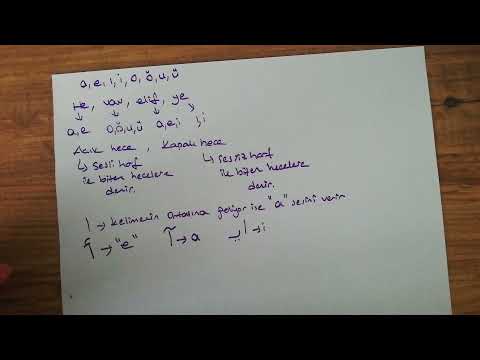 a, e, ı, i, o, ö, u, ü
He, vav, elif, ye
↓ ↓ ↓ ↓
a, e o, ö, u, ü a, e, i ı, i
Açık hece, Kapalı hece
↳ Sesli harf ↳ sessiz harf
ile biten hecelere ile biten hecelere
denir. denir.
ا → kelimenin ortasına geliyor ise "a" sesini verir
أ → "e" آ → a اي → i